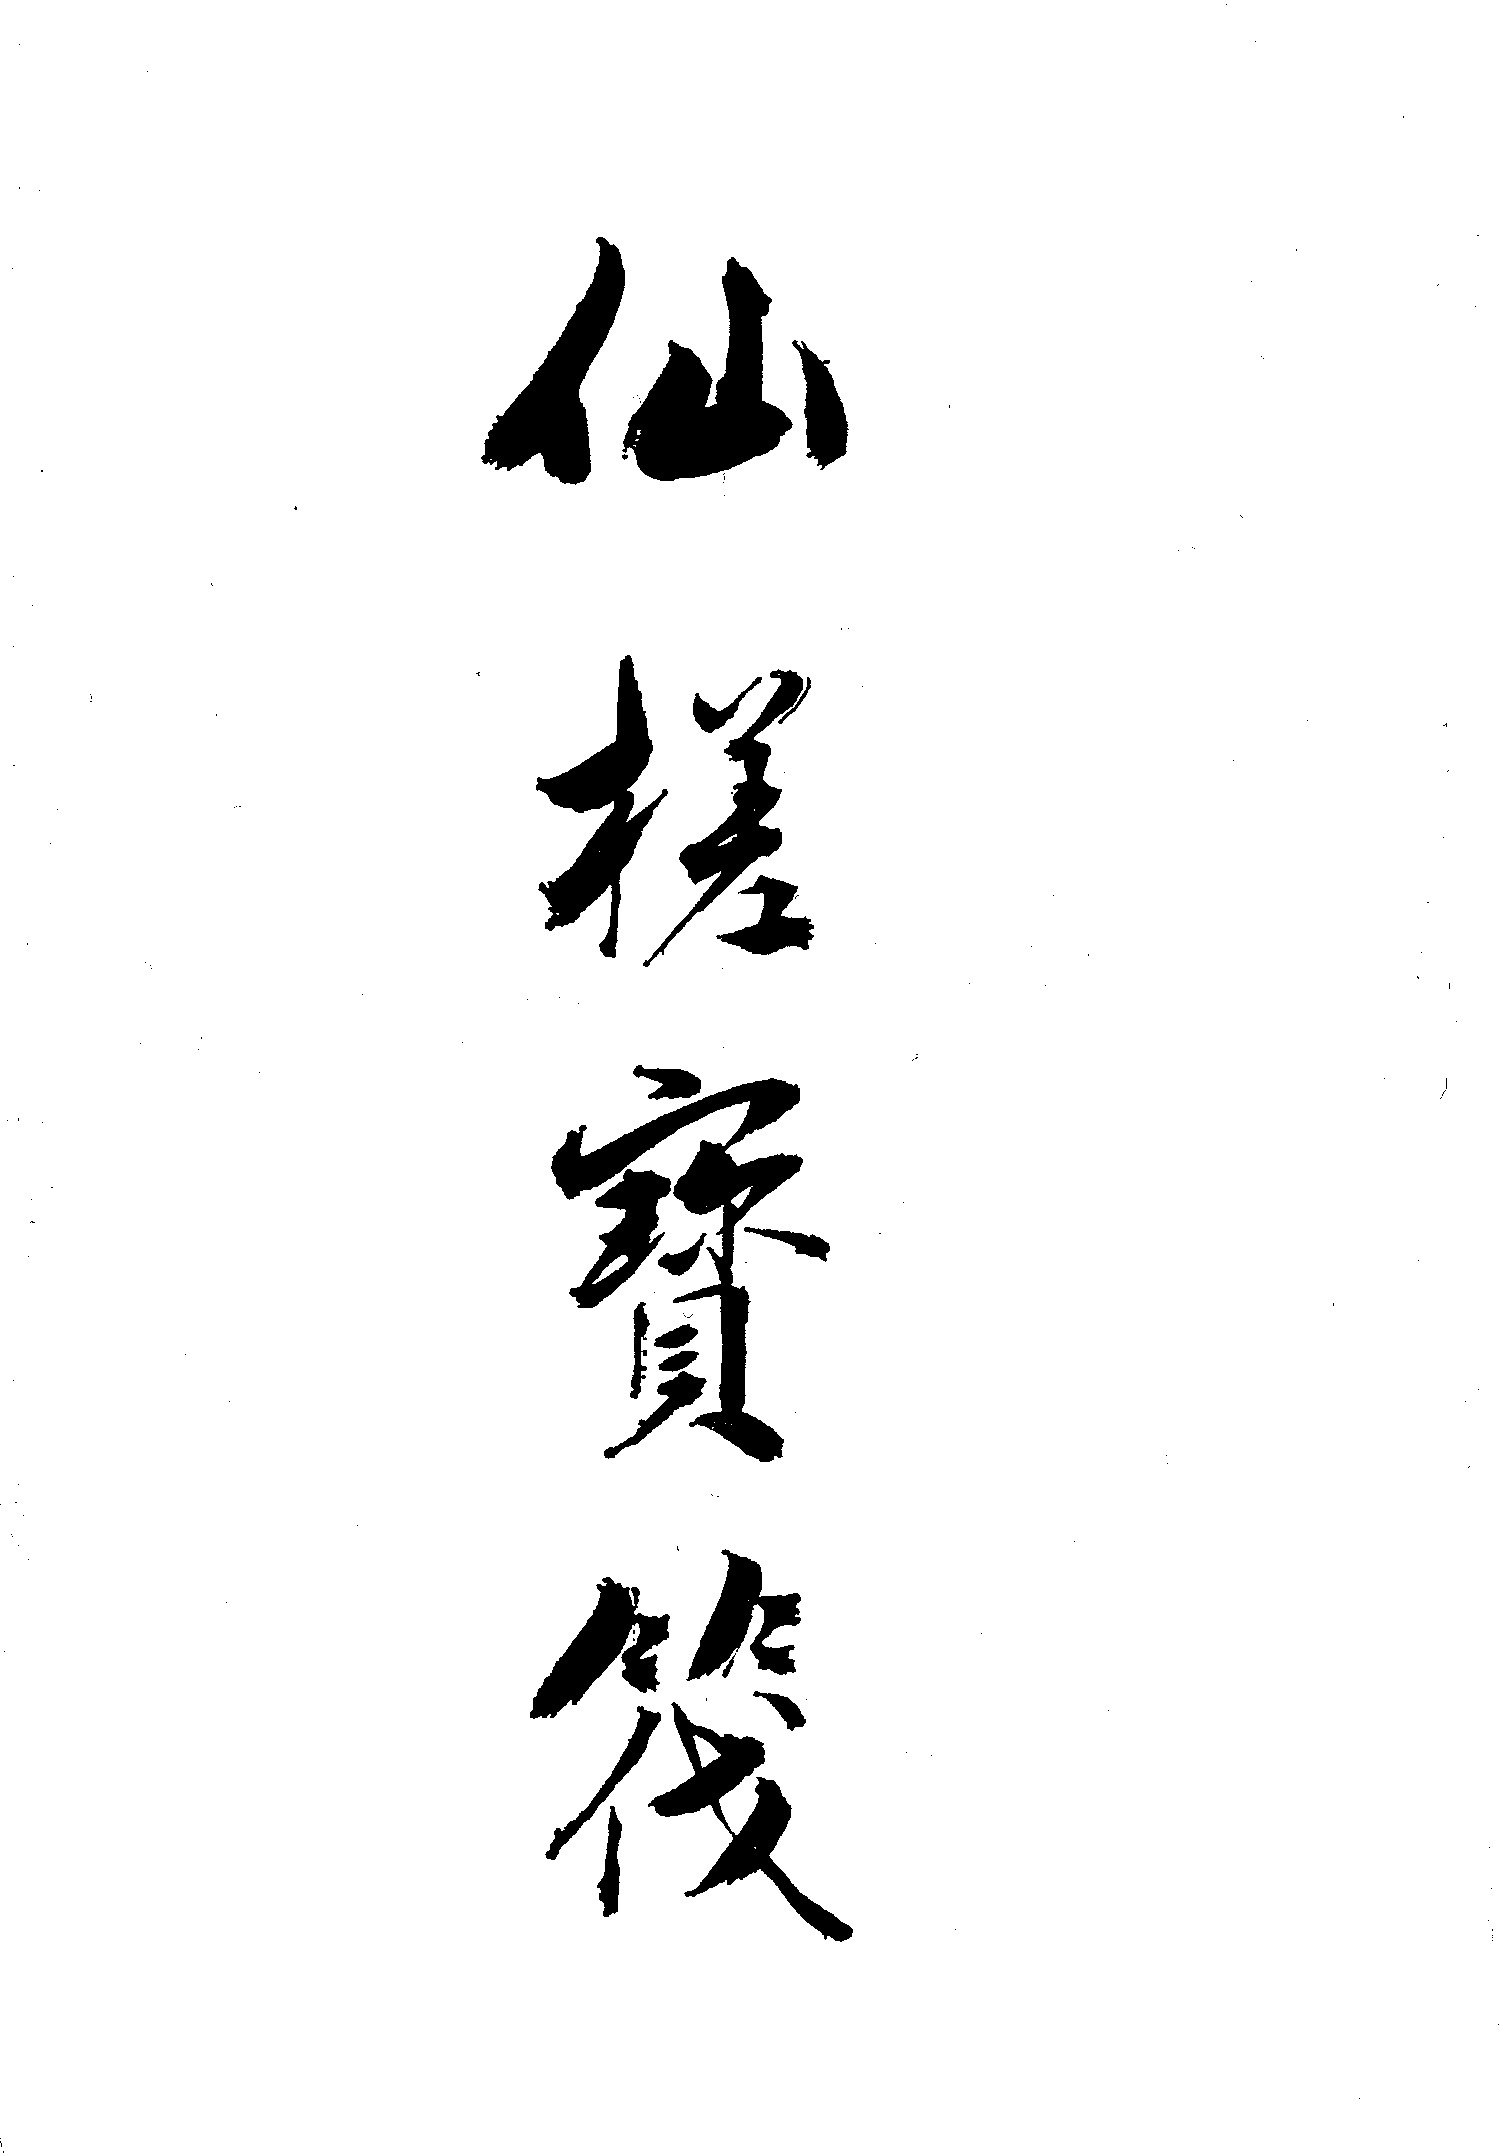 仙槎寶筏